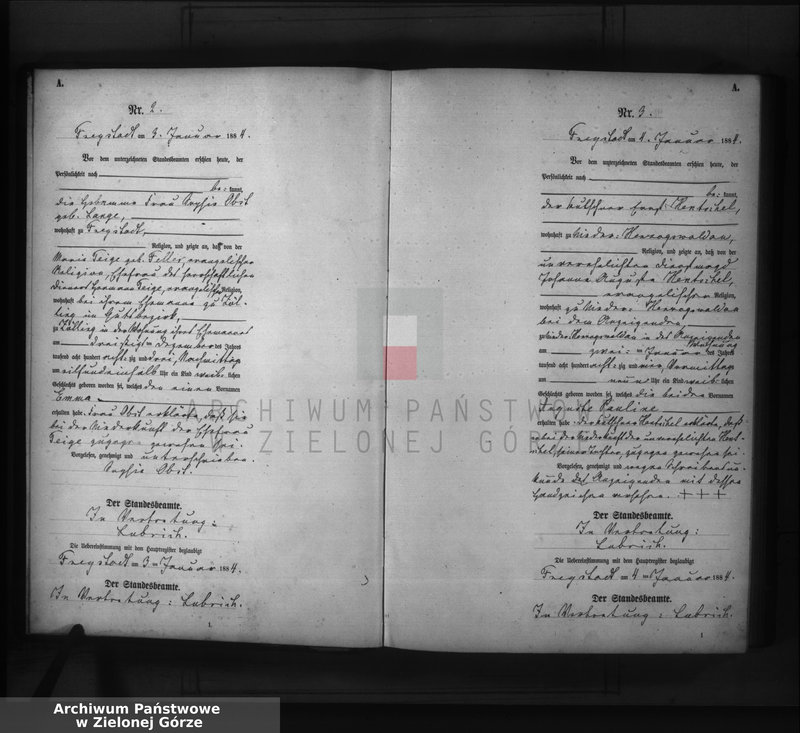 A.
Nr. 2.
Freystadt am 3. Januar 1884.
Vor dem unterzeichneten Standesbeamten erschien heute, der
Persönlichkeit nach
be- kannt,
die Hebamme Frau Sophie Obst
geb. Lange,
wohnhaft zu Freystadt,
Religion, und zeigte an, daß von der
Maria Feige geb. Feller, evangelischer
Religion, Ehefrau des herrschaftlichen
Dieners Hermann Feige, evangelischer Religion,
wohnhaft bei ihrem Ehemann zu Zöl-
ling im Gutsbezirk,
zu Zölling in der Wohnung ihres Ehemannes
am dreißigsten Dezember des Jahres
tausend acht hundert achtzig und drei, Nachmittag
um Uhr ein Kind weib- lichen
Geschlechts geboren worden sei, welches den einen Vornamen
Emma
erhalten habe. Frau Obst erklärte, daß sie
bei der Niederkunft der Ehefrau
Feige zugegen gewesen sei.
Vorgelesen, genehmigt und unterschrieben.
Sophie Obst.
Der Standesbeamte.
In Vertretung:
Lubrich.
Die Uebereinstimmung mit dem Hauptregister beglaubigt
Freystadt am 3ten Januar 1884.
Der Standesbeamte.
In Vertretung: Lubrich.
1.
A.
Nr. 3.
Freystadt am 4. Januar 1884.
Vor dem unterzeichneten Standesbeamten erschien heute, der
Persönlichkeit nach
be- kannt,
der Kutschner Ernst Hentschel,
wohnhaft zu Nieder-Herzogswaldau,
Religion, und zeigte an, daß von der
unverehelichten Dienstmagd
Johanne Auguste Hentschel,
evangelischer Religion,
wohnhaft zu Nieder-Herzogswaldau
bei dem Anzeigenden,
zu Nieder-Herzogswaldau in des Anzeigenden
Wohnung
am zwei- ten Januar des Jahres
tausend acht hundert achtzig und vier Vormittag
um neun Uhr ein Kind weib- lichen
Geschlechts geboren worden sei, welches die beiden Vornamen
Auguste Pauline
erhalten habe. Der Kutschner Hentschel erklärte, daß
er bei der Niederkunft der unverehelichten Hent-
schel, seiner Tochter, zugegen gewesen sei.
Vorgelesen, genehmigt und wegen Schreibensun-
kunde des Anzeigenden mit dessen
Handzeichen versehen. + + +
Der Standesbeamte.
In Vertretung:
Lubrich.
Die Uebereinstimmung mit dem Hauptregister beglaubigt
Freystadt am 4ten Januar 1884.
Der Standesbeamte.
In Vertretung: Lubrich.
1
ARCHIWUM PAŃSTWOWE
W ZIELONEJ GÓRZE
Archiwum Państwowe
w Zielonej Górze